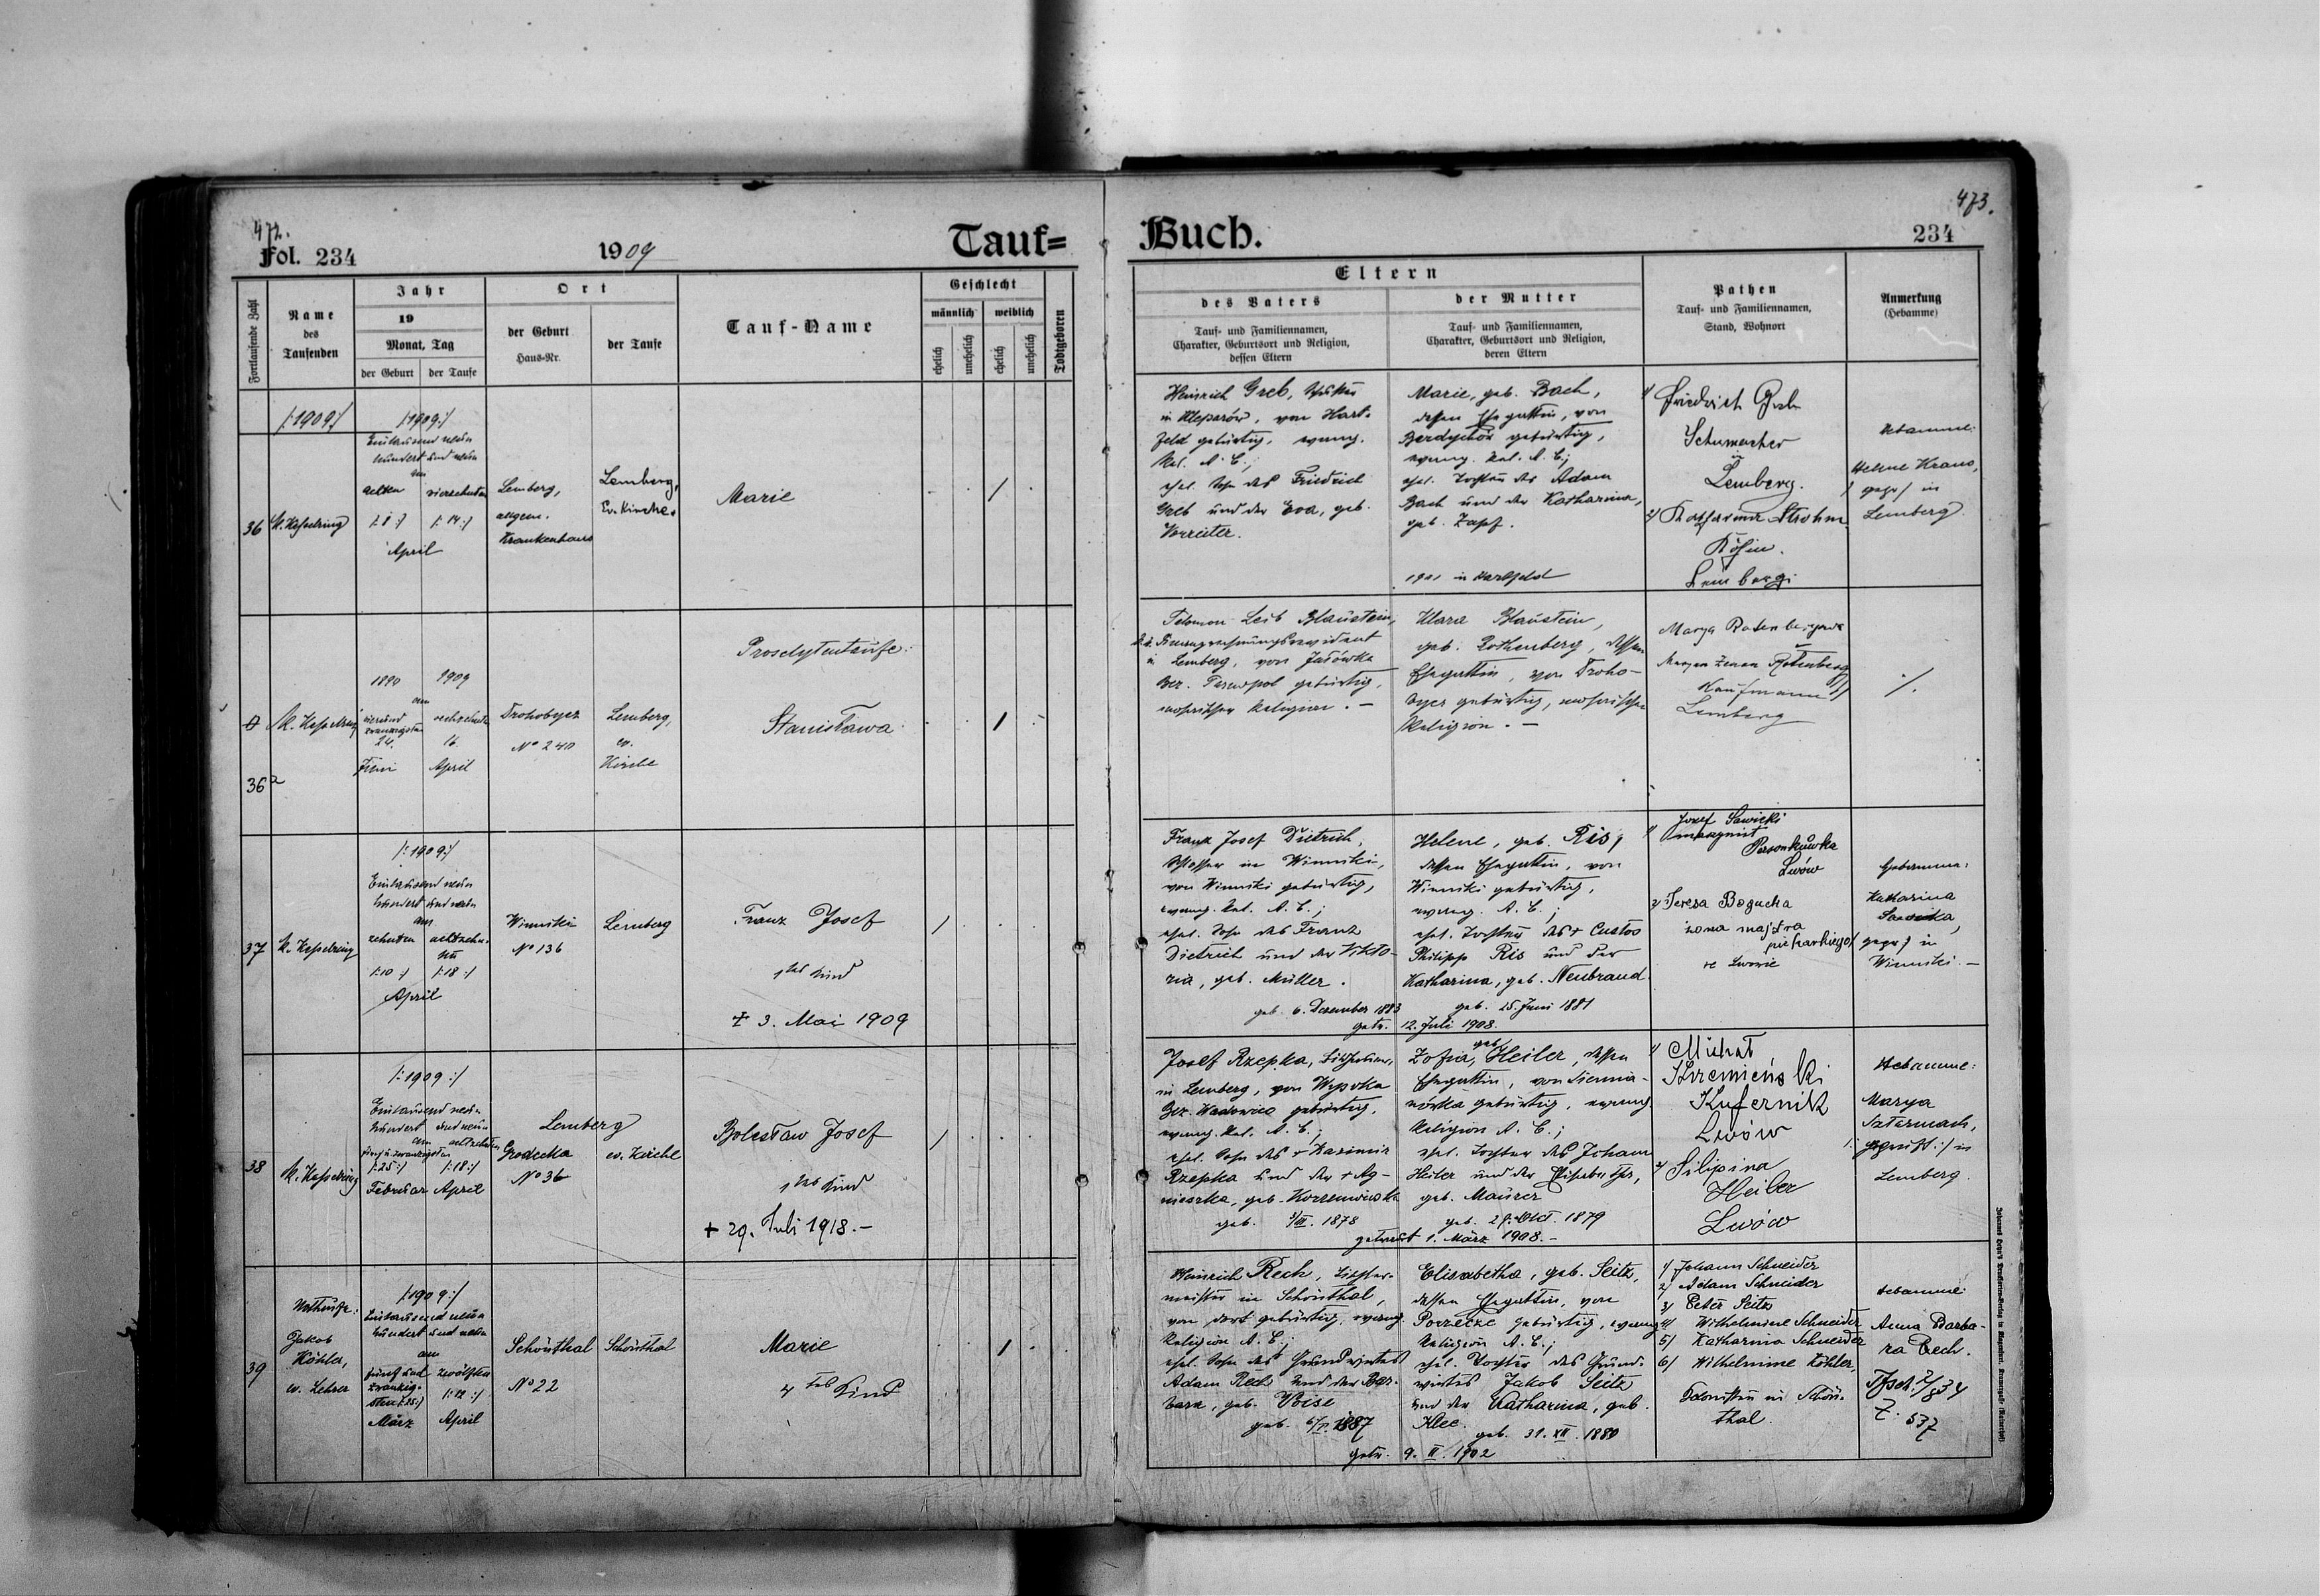 472.
Fol. 234
1909
Tauf=
Fortlaufende Zahl
Name
des
Taufenden
Jahr
19
Monat, Tag
der Geburt
der Taufe
Ort
der Geburt
Haus-Nr.
der Taufe
Tauf-Name
Geschlecht
männlich
weiblich
ehelich
unehelich
ehelich
unehelich
Todtgeboren
/:1909:/
/:1909:/
Eintausend neun
hundert und neun
am
achten
vierzehnten
/:8:/
/:14:/
April
36
K. Kesselring
Lemberg,
allgem.
Krankenhaus
Lemberg,
Ev. Kirche.
Marie
/
Proselytentaufe:
1890
1909
am
vierund
zwanzigsten
24.
Juni
sechzehnten
16.
April
36a
K. Kesselring
Drohobycz
No 240
Lemberg,
ev.
Kirche
Stanisława
/
/:1909:/
Eintausend neun
hundert und neun
am
zehnten
achtzehn-
ten
/:10:/
/:18:/
April
37
K. Kesselring
Winniki
No 136
Lemberg
Franz Josef
1tes Kind
† 3. Mai 1909
/
/:1909:/
Eintausend neun
hundert und neun
am
fünfu.zwanzigsten
achtzehnten
/:25:/
/:18:/
Februar
April
38
K. Kesselring
Lemberg
Grodecka
No 36
ev. Kirche
Bolesław Josef
1tes Kind
† 29. Juli 1918.-
/
/:1909:/
Eintausend neun
hundert und neun
am
fünf und
zwanzig-
sten /:25:/
März
zwölften
/:12:/
April
39
Nottaufe:
Jakob
Köhler,
ev. Lehrer
Schönthal
No 22
Schönthal
Marie
4tes Kind
/
473.
Buch.
234
Eltern
des Vaters
Tauf- und Familiennamen,
Charakter, Geburtsort und Religion,
dessen Eltern
der Mutter
Tauf- und Familiennamen,
Charakter, Geburtsort und Religion,
deren Eltern
Pathen
Tauf- und Familiennamen,
Stand, Wohnort
Anmerkung
(Hebamme)
Heinrich Greb,
in Kleparów, von Hart-
feld gebürtig, evang.
Rel. A. C.;
ehel. Sohn des Friedrich
Greb und der Eva, geb.
Vorreiter.
Marie, geb. Bach,
dessen Ehegattin, von
gebürtig,
evang. Rel. A. C.;
ehel. Tochter des Adam
Bach und der Katharina,
geb. Zapf.
1901 in Hartfeld
1/ Friedrich Greb
Schumacher
in
Lemberg.
2/ Katharina Strohm
Köchin.
Lemberg
Hebamme:
Helene Kraus,
/ gepr/ in
Lemberg.
Salomon Leib Blaustein,
in Lemberg, von
Bez. Tarnopol gebürtig,
mosaischer Religion. -
Klara Blaustein,
geb. Rothenberg, dessen
Ehegattin, von Droho-
bycz gebürtig, mosaischer
Religion. -
Marya Rotenbergowa
Rotenberg
Kaufmann
Lemberg
./.
Franz Josef Dietrich,
Schlosser in Winniki,
von Winniki gebürtig,
evang. Rel. A. C.;
ehel. Sohn des Franz
Dietrich und der Vikto-
ria, geb. Müller.
geb. 6. Dezember 1883
Helene, geb. Ris,
dessen Ehegattin, von
Winniki gebürtig,
evang. A. C.;
ehel. Tochter des † Custos
Philipp Ris und der
Katharina, geb. Neubrand.
geb. 25. Juni 1881
getr. 12. Juli 1908.
1/ Jozef Sawicki
maszynist
Persenkówka
Lwów
2/ Teresa Bogucka
żona majstra
piekarskiego
we Lwowie
Hebamme:
Katharina
gepr/ in
Winniki. -
Josef Rzepka,
in Lemberg, von Wysoka
Bez. Wadowice gebürtig,
evang. Rel. A. C.;
ehel. Sohn des † Kazimir
Rzepka und der † Ag-
nieszka, geb.
geb. 3/III. 1878
Zofia, geb. Heiler, dessen
Ehegattin, von Siemia-
nówka gebürtig, evang.
Religion A. C.;
ehel. Tochter des Johann
Heiler und der Elisabeth,
geb. Maurer
geb. 29. Okt. 1879
getraut 1. März 1908.-
1/ Michał
Krzemieński
Kufernik
Lwów
2/ Filipina
Heiler
Lwów
Hebamme:
Marya
Szturmach,
/: geprüft:/ in
Lemberg.
Heinrich Rech, Tischler-
meister in Schönthal,
von dort gebürtig, evang.
Religion A. C.;
ehel. Sohn des Grundwirtes
Adam Rech und der Bar-
bara, geb. Weise
geb. 6/V. 1887
Elisabetha, geb. Seitz,
dessen Ehegattin, von
Porzecze gebürtig, evang.
Religion A. C.;
ehel. Tochter des Grund-
wirtes Jakob Seitz
und der Katharina, geb.
Klee.
geb. 31. XII. 1880
getr. 9. II. 1902
1/ Johann Schneider
2/ Adam Schneider
3/ Peter Seitz
4/ Wilhelmine Schneider
5/ Katharina Schneider
6/ Wilhelmine Köhler,
in Schön-
thal.
Hebamme:
Anna Barba-
ra Rech.
Z. 537